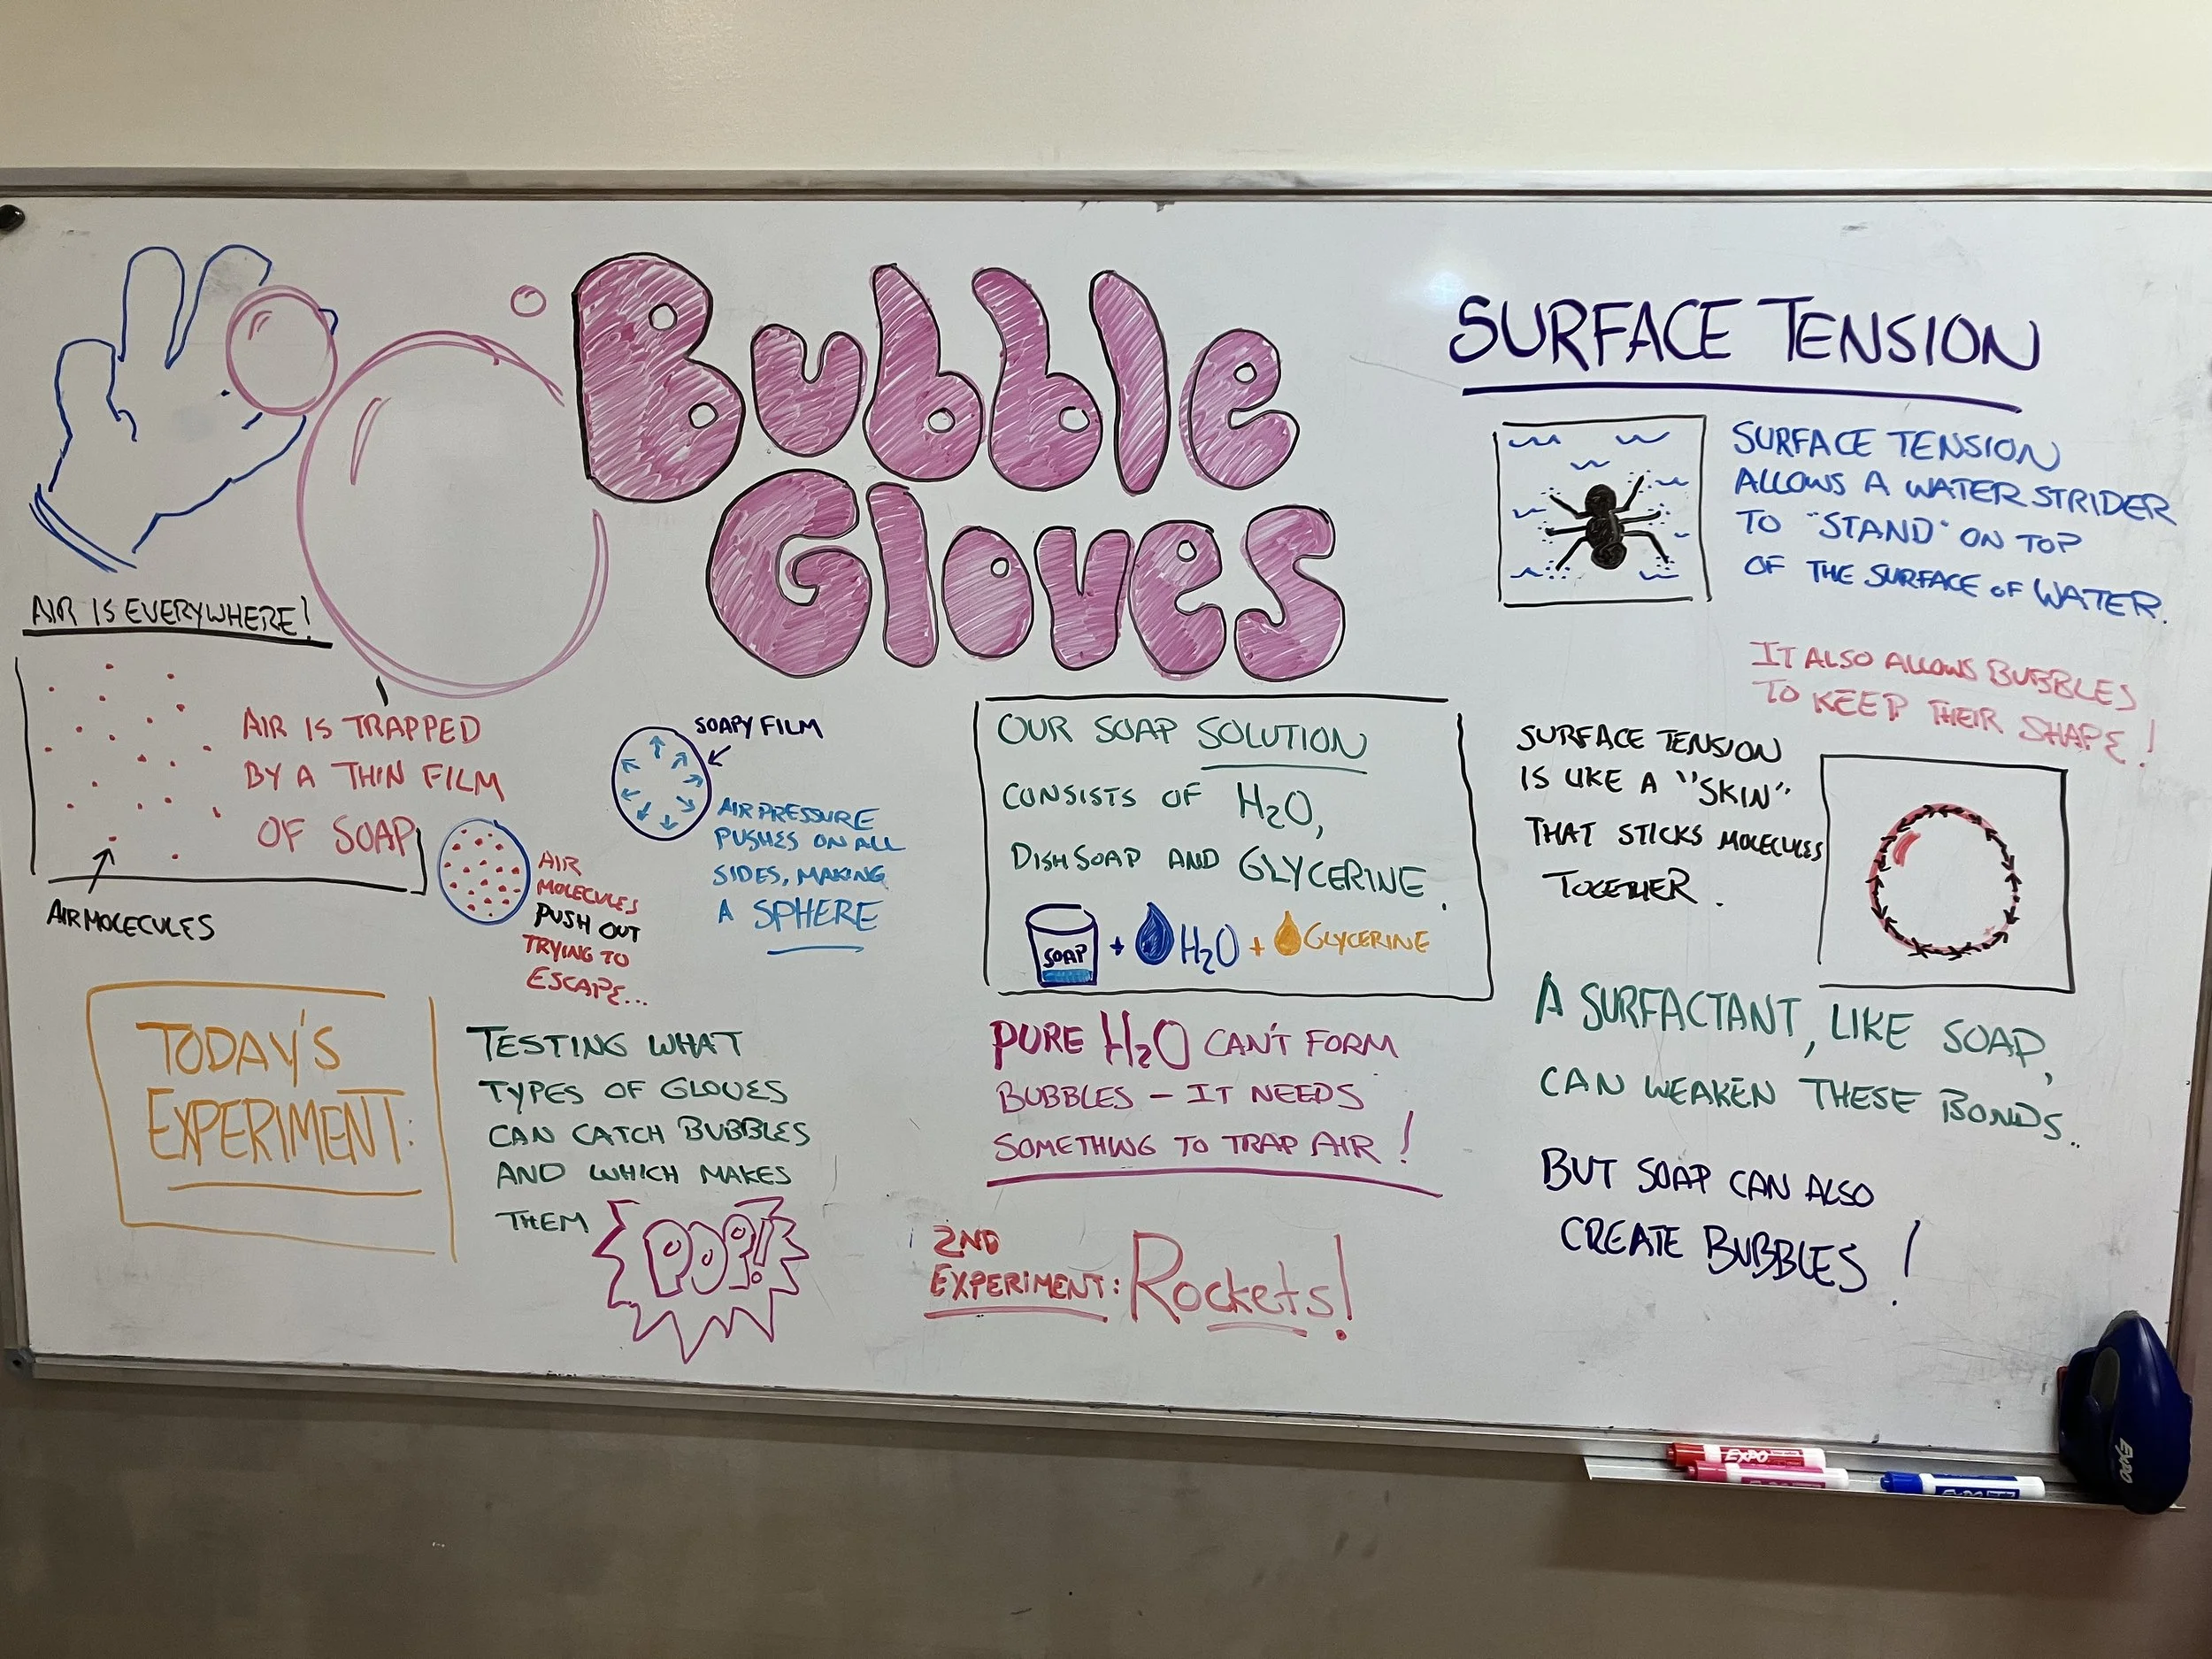 Bubble
Gloves
AIR IS EVERYWHERE!
AIR IS TRAPPED
BY A THIN FILM
OF SOAP
AIR MOLECULES
AIR
MOLECULES
PUSH OUT
TRYING TO
ESCAPE...
SOAPY FILM
AIR PRESSURE
PUSHES ON ALL
SIDES, MAKING
A SPHERE
TODAY'S
EXPERIMENT:
TESTING WHAT
TYPES OF GLOVES
CAN CATCH BUBBLES
AND WHICH MAKES
THEM POP!!
OUR SOAP SOLUTION
CONSISTS OF H₂O,
DISH SOAP AND GLYCERINE.
SOAP + H₂O + GLYCERINE
PURE H₂O CAN'T FORM
BUBBLES - IT NEEDS
SOMETHING TO TRAP AIR!
2ND
EXPERIMENT: ROCKETS!
SURFACE TENSION
SURFACE TENSION
ALLOWS A WATER STRIDER
TO "STAND" ON TOP
OF THE SURFACE OF WATER.
IT ALSO ALLOWS BUBBLES
TO KEEP THEIR SHAPE!
SURFACE TENSION
IS LIKE A "SKIN"
THAT STICKS MOLECULES
TOGETHER.
A SURFACTANT, LIKE SOAP,
CAN WEAKEN THESE BONDS..
BUT SOAP CAN ALSO
CREATE BUBBLES!
EXPO
EXPO
EXPO